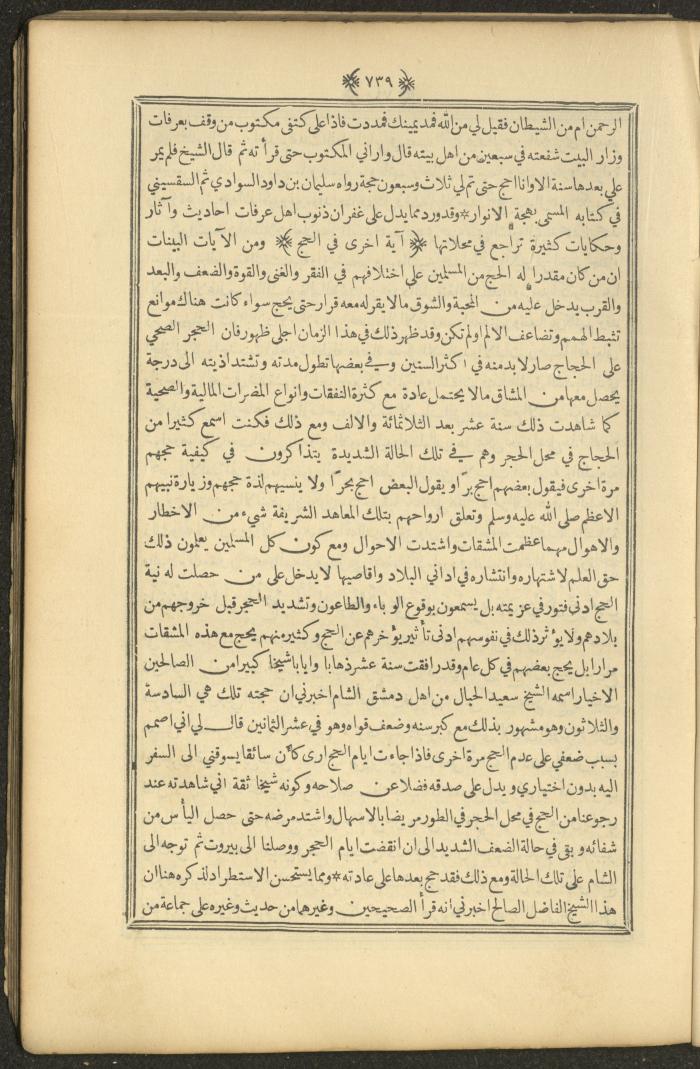 ﴿ ٧٣٩ ﴾
الرحمن ام من الشيطان فقيل لي من الله فمد يمينك فمددت فاذا على كتفى مكتوب من وقف بعرفات
وزار البيت شفعته في سبعين من اهل بيته قال واراني المكتوب حتى قرأته ثم قال الشيخ فلم يمر
علي بعدها سنة الا وانا احج حتى تم لي ثلاث وسبعون حجة رواه سليمان بن داود السوادي ثم السقسيني
في كتابه المسمى بهجة الانوار * وقد ورد مما يدل على غفران ذنوب اهل عرفات احاديث وآثار
وحكايات كثيرة تراجع في محلاتها ﴿ آية اخرى في الحج ﴾ ومن الآيات البينات
ان من كان مقدرا له الحج من المسلمين على اختلافهم في الفقر والغنى والقوة والضعف والبعد
والقرب يدخل عليه من المحبة والشوق مالا يقر له معه قرار حتى يحج سواء كانت هناك موانع
تثبط الهمم وتضاعف الالم او لم تكن وقد ظهر ذلك في هذا الزمان اجلى ظهور فان الحجر الصحي
على الحجاج صار لا بد منه في اكثر السنين وفي بعضها تطول مدته وتشتد اذيته الى درجة
يحصل معها من المشاق مالا يحتمل عادة مع كثرة النفقات وانواع المضرات المالية والصحية
كما شاهدت ذلك سنة عشر بعد الثلاثمائة والالف ومع ذلك فكنت اسمع كثيرا من
الحجاج في محل الحجر وهم في تلك الحالة الشديدة يتذاكرون في كيفية حجهم
مرة اخرى فيقول بعضهم احج برًا ويقول البعض احج بحرًا ولا ينسيهم لذة حجهم وزيارة نبيهم
الاعظم صلى الله عليه وسلم وتعلق ارواحهم بتلك المعاهد الشريفة شيء من الاخطار
والاهوال مهما عظمت المشقات واشتدت الاحوال ومع كون كل المسلمين يعلمون ذلك
حق العلم لاشتهاره وانتشاره في اداني البلاد واقاصيها لا يدخل على من حصلت له نية
الحج ادنى فتور في عزيمته بل يسمعون بوقوع الوباء والطاعون وتشديد الحجر قبل خروجهم من
بلادهم ولا يؤثر ذلك في نفوسهم ادنى تأثير يؤخرهم عن الحج وكثير منهم يحج مع هذه المشقات
مرارا بل يحج بعضهم في كل عام وقد رافقت سنة عشر ذهابا وايابا شيخا كبيرا من الصالحين
الاخيار اسمه الشيخ سعيد الحبال من اهل دمشق الشام اخبرني ان حجته تلك هي السادسة
والثلاثون وهو مشهور بذلك مع كبر سنه وضعف قواه وهو في عشر الثمانين قال لي اني اصمم
بسبب ضعفي على عدم الحج مرة اخرى فاذا جاءت ايام الحج ارى كأن سائقا يسوقني الى السفر
اليه بدون اختياري ويدل على صدقه فضلا عن صلاحه وكونه شيخا ثقة اني شاهدته عند
رجوعنا من الحج في محل الحجر في الطور مريضا بالاسهال واشتد مرضه حتى حصل اليأس من
شفائه وبقي في حالة الضعف الشديد الى ان انقضت ايام الحجر ووصلنا الى بيروت ثم توجه الى
الشام على تلك الحالة ومع ذلك فقد حج بعدها على عادته * ومما يستحسن الاستطراد لذكره هنا ان
هذا الشيخ الفاضل الصالح اخبرني انه قرأ الصحيحين وغيرهما من حديث وغيره على جماعة من